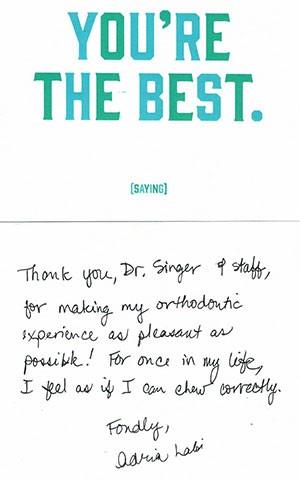 YOU'RE
THE BEST.
[SAYING]
Thank you, Dr. Singer & staff,
for making my orthodontic
experience as pleasant as
possible! For once in my life,
I feel as if I can chew correctly.
Fondly,
Adria